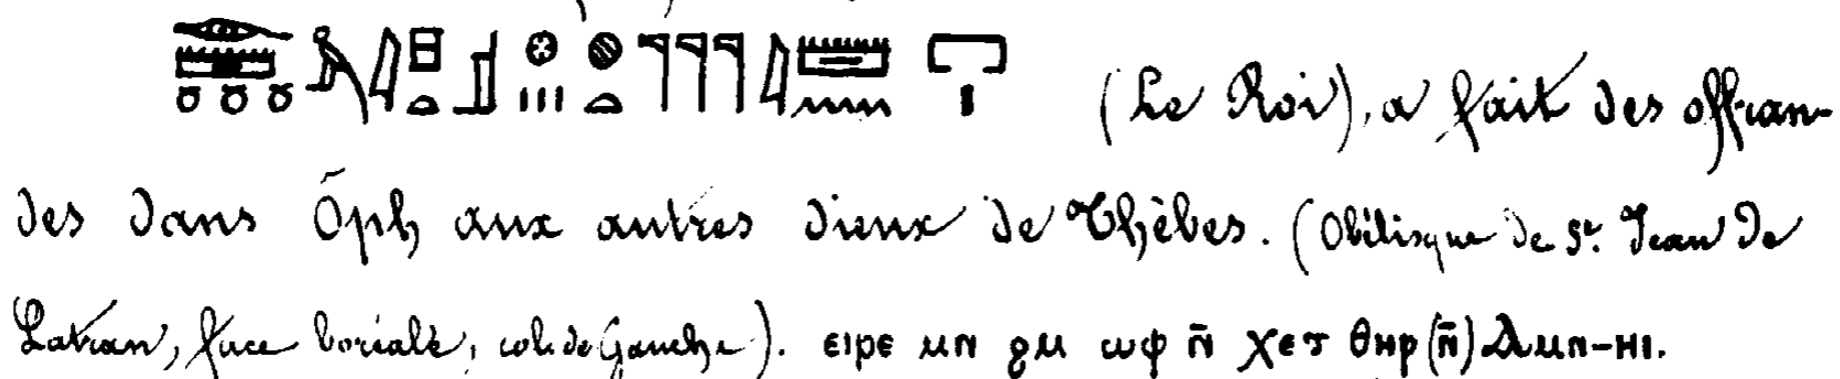 (Le Roi), a fait des offran-
des dans Ôph aux autres dieux de Thèbes. (Obélisque de St. Jean de
Latran, face boréale, col. de Gauche). ⲉⲓⲣⲉ ⲙⲛ ϩⲙ ⲱⲫ ⲛ̄ ⲭⲉⲧ ⲑⲏⲣ (ⲛ̄) Ⲁⲙⲛ-ⲏⲓ.